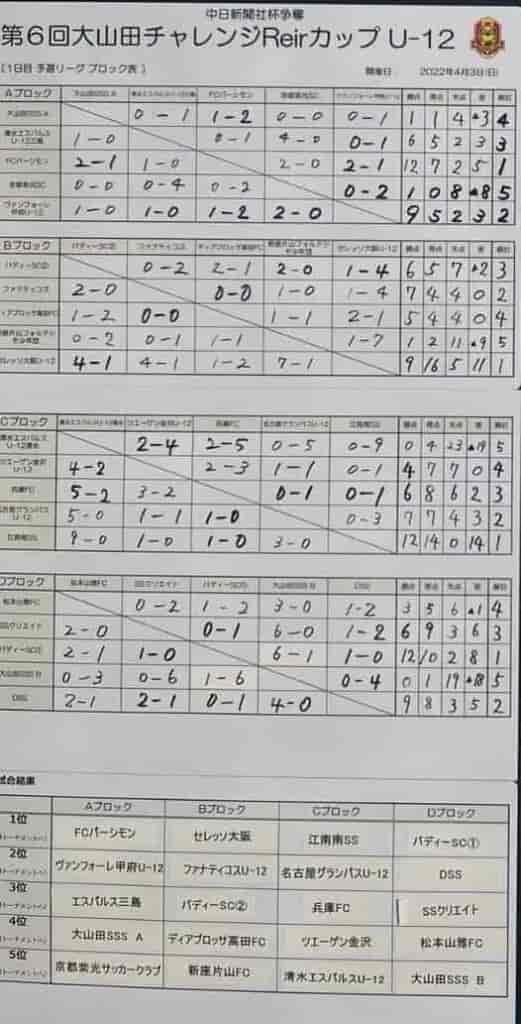 中日新聞社杯争奪
第6回大山田チャレンジReirカップ U-12
（1日目 予選リーグ ブロック表 ） 開催日： 2022年4月3日(日)
Aブロック 大山田SSS A FCパーシモン 勝点 得点 失点 差 順位
大山田SSS A 0-1 1-2 0-0 0-1 1 1 4 ▲3 4
清水エスパルスU-12三島 1-0 0-1 4-0 0-1 6 5 2 3 3
FCパーシモン 2-1 1-0 2-0 2-1 12 7 2 5 1
京都紫光SC 0-0 0-4 0-2 0-2 1 0 8 ▲8 5
ヴァンフォーレ甲府U-12 1-0 1-0 1-2 2-0 9 5 2 3 2
Bブロック バディーSC② ファナティコス ディアブロッサ高田FC セレッソ大阪U-12 勝点 得点 失点 差 順位
バディーSC② 0-2 2-1 2-0 1-4 6 5 7 ▲2 3
ファナティコス 2-0 0-0 1-0 1-4 7 4 4 0 2
ディアブロッサ高田FC 1-2 0-0 1-1 2-1 5 4 4 0 4
0-2 0-1 1-1 1-7 1 2 11 ▲9 5
セレッソ大阪U-12 4-1 4-1 1-2 7-1 9 16 5 11 1
Cブロック 清水エスパルスU-12清水 ツエーゲン金沢U-12 兵庫FC 名古屋グランパスU-12 江南南SS 勝点 得点 失点 差 順位
清水エスパルスU-12清水 2-4 2-5 0-5 0-9 0 4 23 ▲19 5
ツエーゲン金沢U-12 4-2 2-3 1-1 0-1 4 7 7 0 4
兵庫FC 5-2 3-2 0-1 0-1 6 8 6 2 3
名古屋グランパスU-12 5-0 1-1 1-0 0-3 7 7 4 3 2
江南南SS 9-0 1-0 1-0 3-0 12 14 0 14 1
Dブロック 松本山雅FC SSクリエイト バディーSC① 大山田SSS B DSS 勝点 得点 失点 差 順位
松本山雅FC 0-2 1-2 3-0 1-2 3 5 6 ▲1 4
SSクリエイト 2-0 0-1 6-0 1-2 6 9 3 6 3
バディーSC① 2-1 1-0 6-1 1-0 12 10 2 8 1
大山田SSS B 0-3 0-6 1-6 0-4 0 1 19 ▲18 5
DSS 2-1 2-1 0-1 4-0 9 8 3 5 2
試合結果
Aブロック Bブロック Cブロック Dブロック
1位 FCパーシモン セレッソ大阪 江南南SS バディーSC①
2位 ヴァンフォーレ甲府U-12 ファナティコスU-12 名古屋グランパスU-12 DSS
3位 エスパルス三島 バディーSC② 兵庫FC SSクリエイト
4位 大山田SSS A ディアブロッサ高田FC ツエーゲン金沢 松本山雅FC
5位 京都紫光サッカークラブ 新座片山FC 清水エスパルスU-12 大山田SSS B